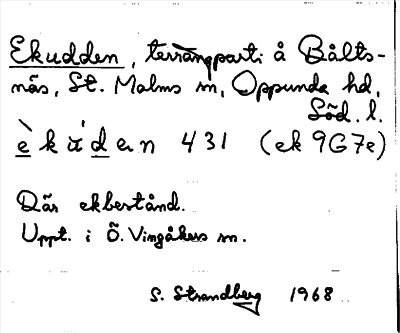 Ekudden, terrängparti å Bålts-
näs, St. Malms sn, Oppunda hd,
Söd. l.
è k ú d en 431 (ek 9G7e)
Där ekbestånd.
Uppt. i Ö. Vingåkers sn.
S. Strandberg 1968